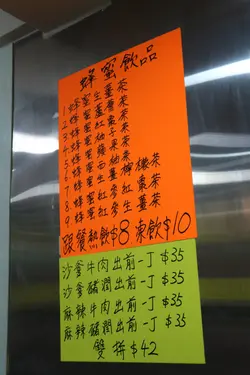 蜂蜜飲品
1 蜂蜜生薑茶
2 蜂蜜
3 蜂蜜紅棗茶
4 蜂蜜柚子茶
5 蜂蜜
6 蜂蜜
7 蜂蜜
8 蜂蜜紅參紅棗茶
9 蜂蜜紅參生薑茶
跟餐熱飲$8 凍飲$10
沙爹牛肉出前一丁 $35
沙爹豬潤出前一丁 $35
麻辣牛肉出前一丁 $35
麻辣豬潤出前一丁 $35
雙拼 $42